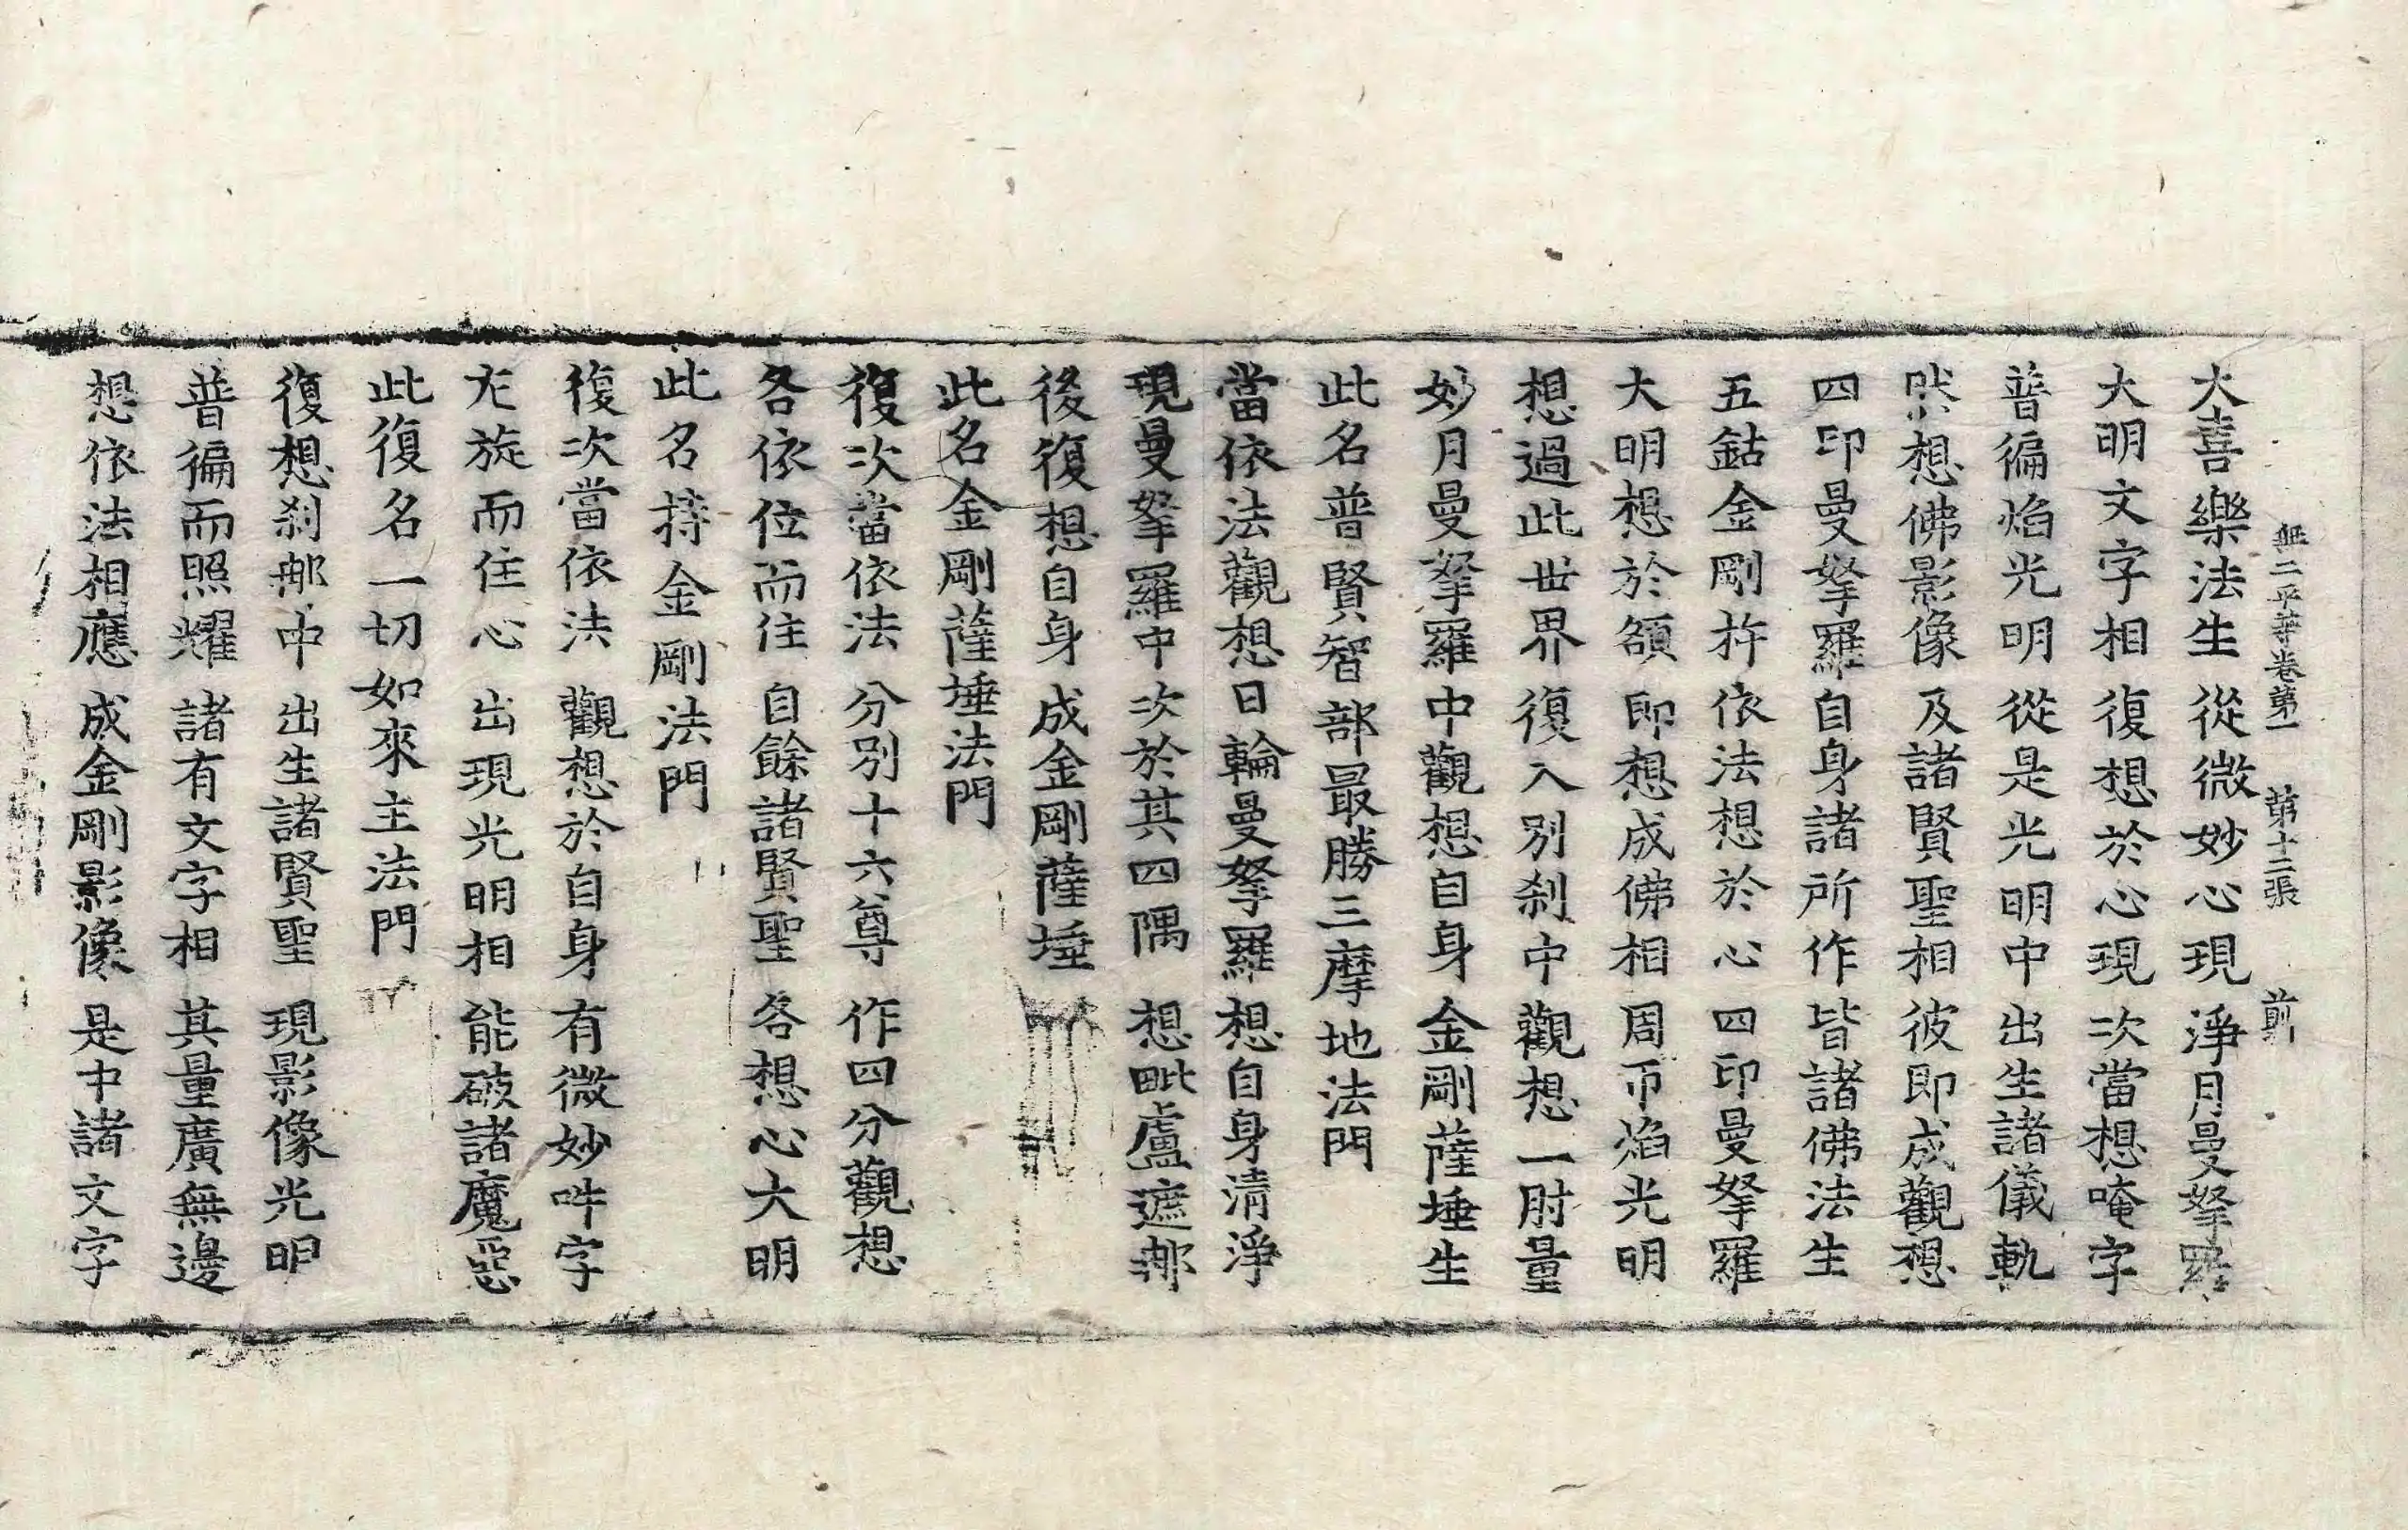 無二平等卷第一 第十二張 前
大喜樂法生 從微妙心現 淨月曼拏羅
大明文字相 復想於心現 次當想唵字
普徧焰光明 從是光明中 出生諸儀軌
然想佛影像 及諸賢聖相 彼即成觀想
四印曼拏羅 自身諸所作 皆諸佛法生
五鈷金剛杵 依法想於心 四印曼拏羅
大明想於額 即想成佛相 周帀焰光明
想過此世界 復入別刹中 觀想一肘量
妙月曼拏羅 中觀想自身 金剛薩埵生
此名普賢智部最勝三摩地法門
當依法觀想 日輪曼拏羅 想自身清淨
現曼拏羅中 次於其四隅 想毗盧遮那
後復想自身 成金剛薩埵
此名金剛薩埵法門
復次當依法 分別十六尊 作四分觀想
各依位而住 自餘諸賢聖 各想心大明
此名持金剛法門
復次當依法 觀想於自身 有微妙吽字
左旋而住心 出現光明相 能破諸魔惡
此復名一切如來主法門
復想刹那中 出生諸賢聖 現影像光明
普徧而照耀 諸有文字相 其量廣無邊
想依法相應 成金剛影像 是中諸文字